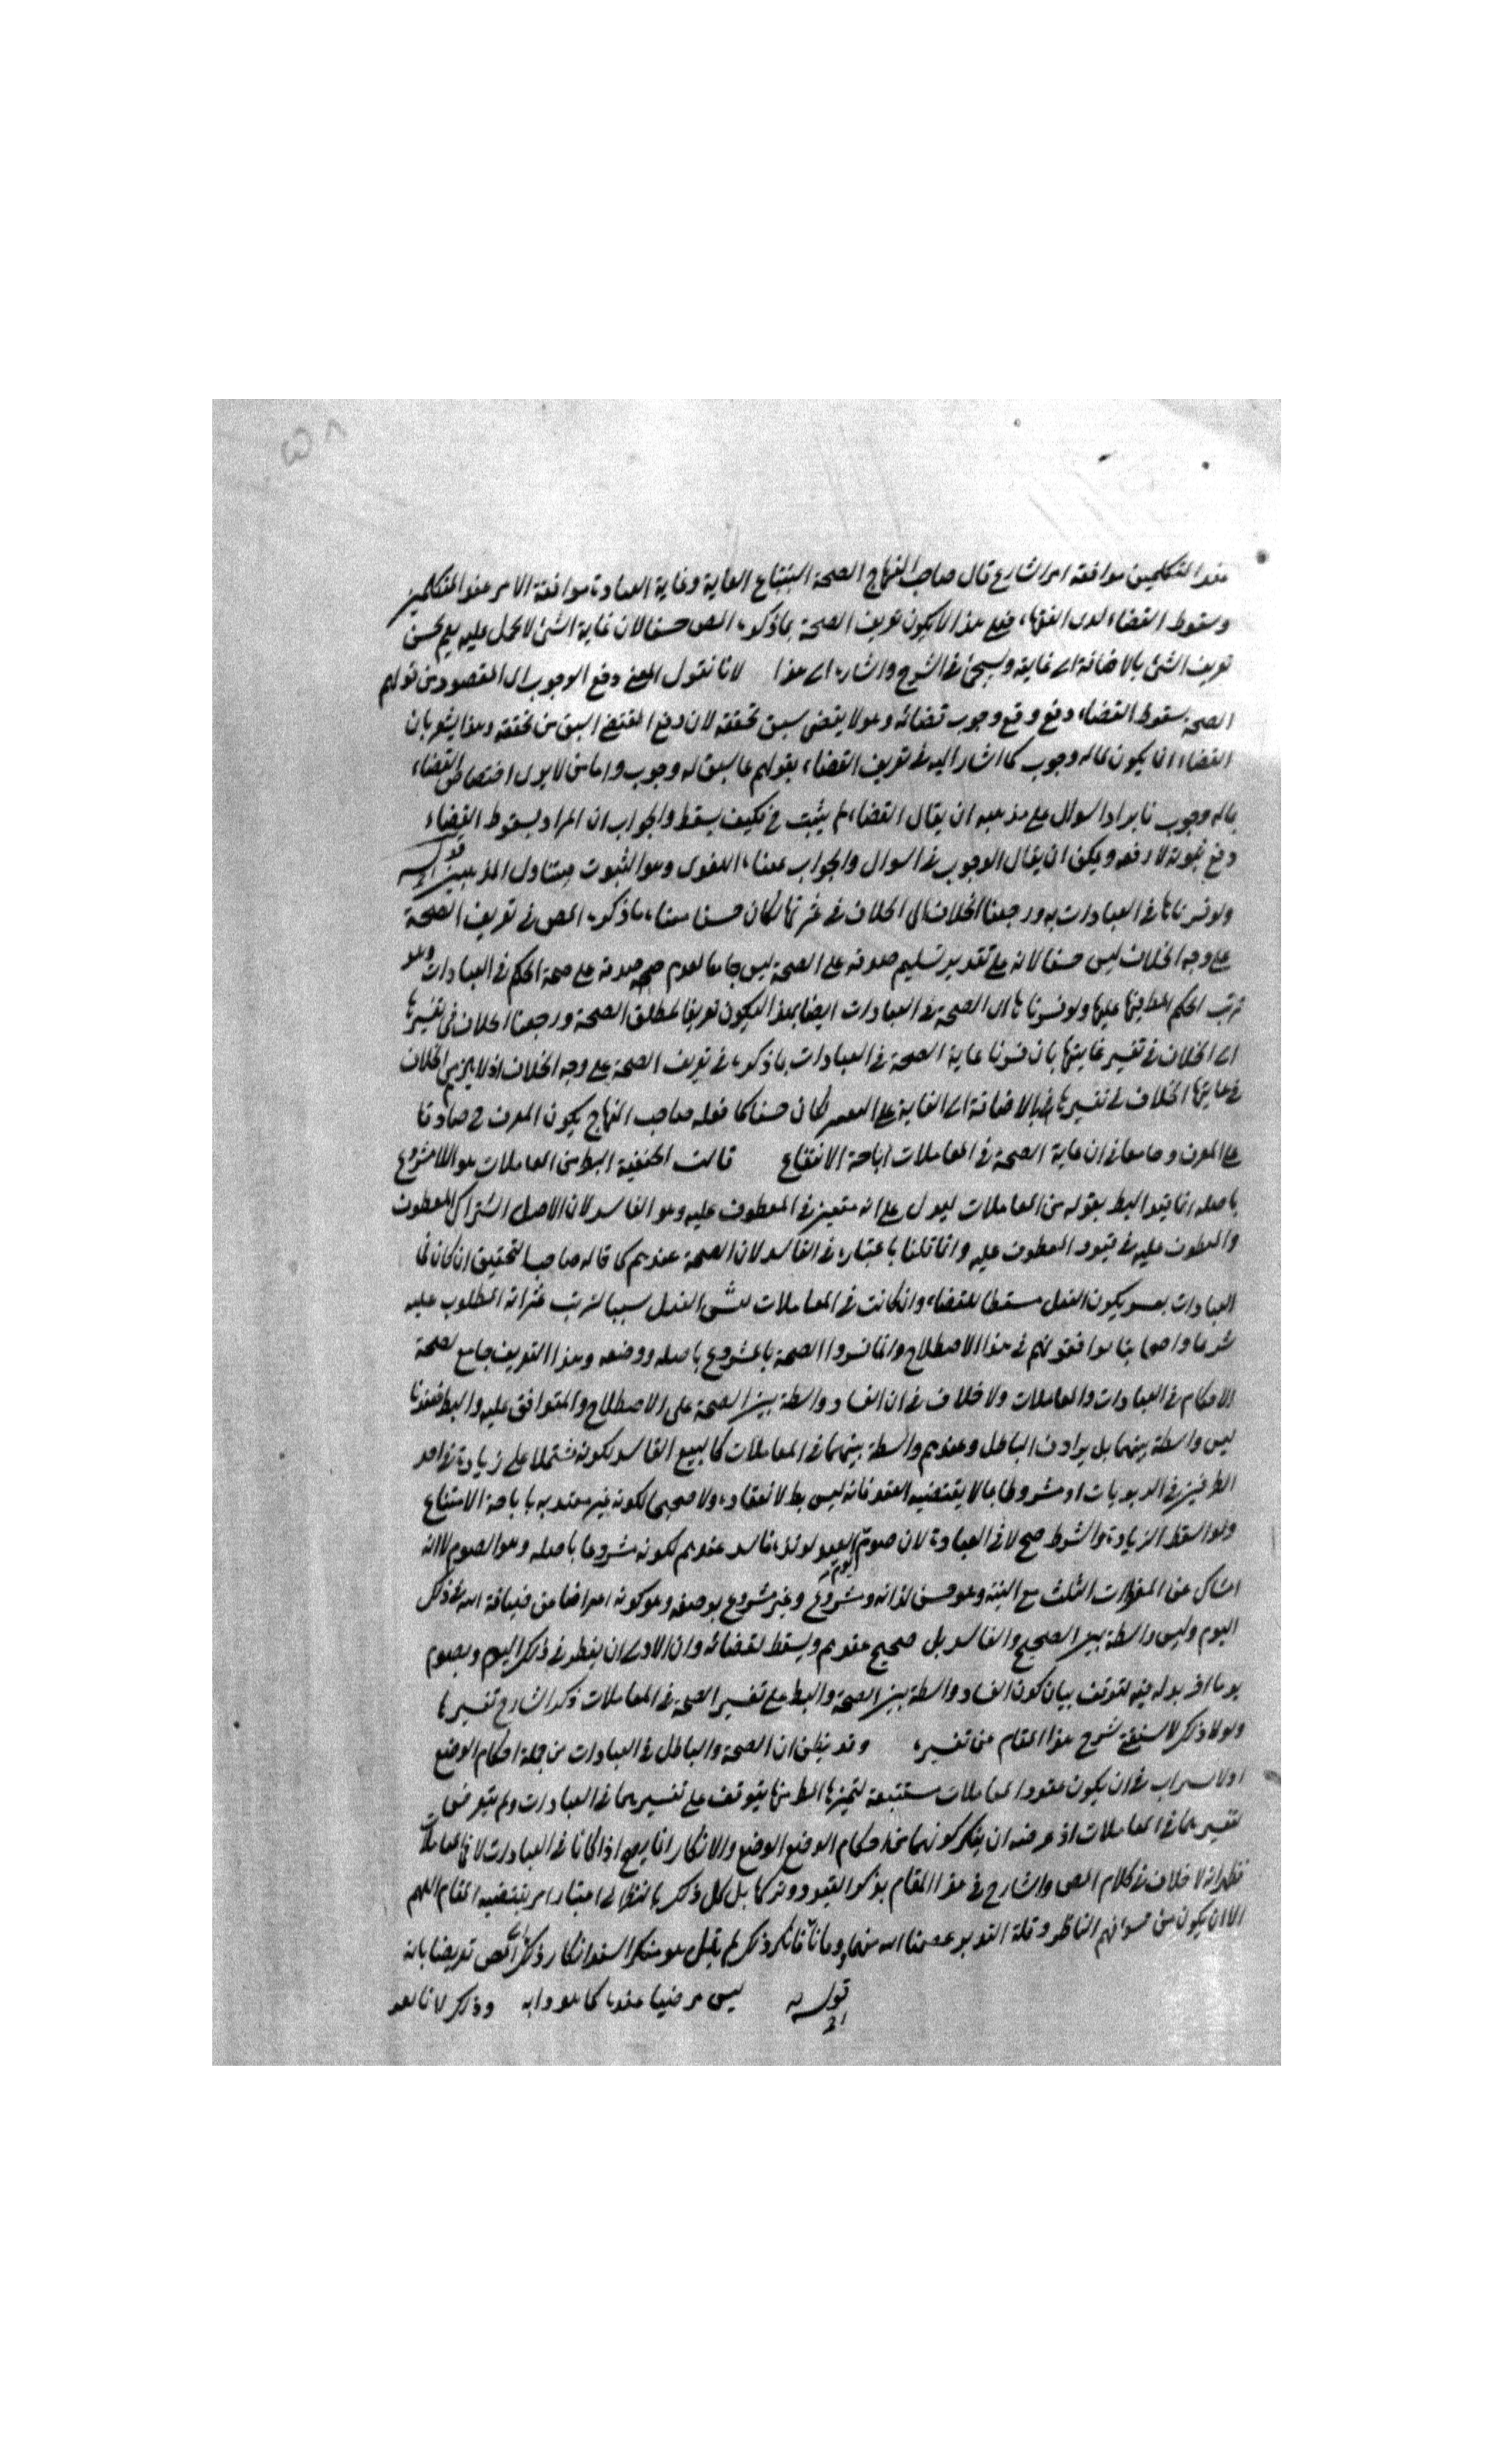 ٥٨
عند المتكلمين موافقة امر الشارع قال صاحب المنهاج الصحة استتباع الغاية وغاية العبادة موافقة الامر عند المتكلمين
وسقوط القضاء لدى الفقهاء فعلى هذا لا يكون تعريف الصحة بما ذكره المص حسنا لان غاية الشئ لا تحمل عليه نعم يحسن
تعريف الشئ بالاضافة الى غايته وسيجئ في الشرح واشار الى هذا لانا نقول المعنى دفع الوجوب اى المقصود من قولهم
الصحة سقوط القضاء دفع وقع وجوب قضائه وهو لا يقتضى سبق تحققه لان دفع المقتضى اسبق من تحققه وهذا يشعر بان
القضاء انما يكون لما له وجوب كما اشار اليه في تعريف القضاء بقولهم ما سبق له وجوب واما من لا يرى اختصاص القضاء
بما له وجوب فايراد السوال على مذهبه ان يقال القضاء لم يثبت فكيف يسقط والجواب ان المراد بسقوط القضاء
دفع ثبوته لا رفعه ويمكن ان يقال الوجوب في السوال والجواب معناه اللغوى وهو الثبوت فيتناول المذهبين قوله
ولو فسرناها في العبادات به ورجعنا الخلاف الى الخلاف في ثمرتها لكان حسنا معناه ما ذكره المص في تعريف الصحة
على وجه الخلاف ليس حسنا لانه على تقدير تسليم صدقه على الصحة ليس جامعا لعدم صدقه على صحة الحكم في العبادات وهو
ترتب الحكم المطلوب منها عليها ولو فسرناها اى الصحة في العبادات ايضا بهذا ليكون تعريفا لمطلق الصحة ورجعنا الخلاف في تفسيرها
الى الخلاف في تفسير غايتها بان فسرنا غاية الصحة في العبادات بما ذكره في تعريف الصحة على وجه الخلاف اذ لا يلزم من الخلاف
في غايتها الخلاف في تفسيرها بالاضافة الى الغاية لكان حسنا كما فعله صاحب المنهاج يكون المعرف ح صادقا
على المعرف وجامعا في ان غاية الصحة في المعاملات اباحة الانتفاع قالت الحنفية البط من المعاملات هو اللامشروع
باصله انما قيد البط بقوله من المعاملات ليدل على انه معتبر في المعطوف عليه وهو الفاسد لان الاصل اشتراك المعطوف
والمعطوف عليه في قيود المعطوف عليه وانما قلنا باعتباره في الفاسد لان الصحة عندهم كما قاله صاحب التحقيق ان كان في
العبادات يكون الفعل مسقطا للقضاء وان كانت في المعاملات الفعل سببا لترتب ثمراته المطلوب عليه
شرعا واصحابنا موافقونهم في هذا الاصطلاح وانما فسروا الصحة بالمشروع باصله ووصفه وهذا التعريف جامع لصحة
الاحكام في العبادات والمعاملات ولا خلاف في ان الفساد واسطة بين الصحة على الاصطلاح المتوافق عليه والبط فعندنا
ليس واسطة بينهما بل يرادف الباطل وعندهم واسطة بينهما في المعاملات كالبيع الفاسد لكونه مشتملا على زيادة في احد
الطرفين في الربويات او مشروطا بما لا يقتضيه العقد فانه ليس بط لانعقاده ولا صحيحا لكونه غير معتد به باباحة الانتفاع
ولو اسقط الزيادة والشرط صح لا في العبادة لان صوم يوم العيد لو نذره فاسد عندهم لكونه مشروعا باصله وهو الصوم لانه
امساك عن المفطرات الثلث مع النية وهو حسن لذاته ومشروع وغير مشروع بوصفه وهو كونه اعراضا من ضيافة الله في ذلك
اليوم وليس واسطة بين الصحيح والفاسد بل صحيح عندهم ويسقط لقضائه وان الاولى ان يفطر في ذلك اليوم ويصوم
يوما اخر بدله فيه لتوقف بيان كون الفساد واسطة بين الصحة والبط على تفسير الصحة في المعاملات ذكر الشارح تفسيرها
ولولا ذلك لاستغنى شرح هذا المقام عن تفسيره وقد يظن ان الصحة والباطل في العبادات من جملة احكام الوضع
اولا ارتياب في ان يكون عقود المعاملات مستتبعة لثمرتها المط منها يتوقف على تفسيرهما في العبادات ولم يتعرض
لتفسيرهما في المعاملات اذ غرضه ان ينكر كونهما من احكام الوضع والانكار انما يصح اذا كانا في العبادات لا في المعاملات
فظهر انه لا خلاف في كلام المص والشارح في هذا المقام بذكر القيود وتركها بل كل ذلك بالنظر الى اعتبار امر يقتضيه المقام اللهم
الا ان يكون من سوء فهم الناظر وقلة التدبر عصمنا الله منهما قوله فانكر ذلك لم يقل هو منكر اسند انكار ذلك الى المص تعريضا بانه
ليس مرضيا عنده كما هو دابه قوله وذلك لانا بعد